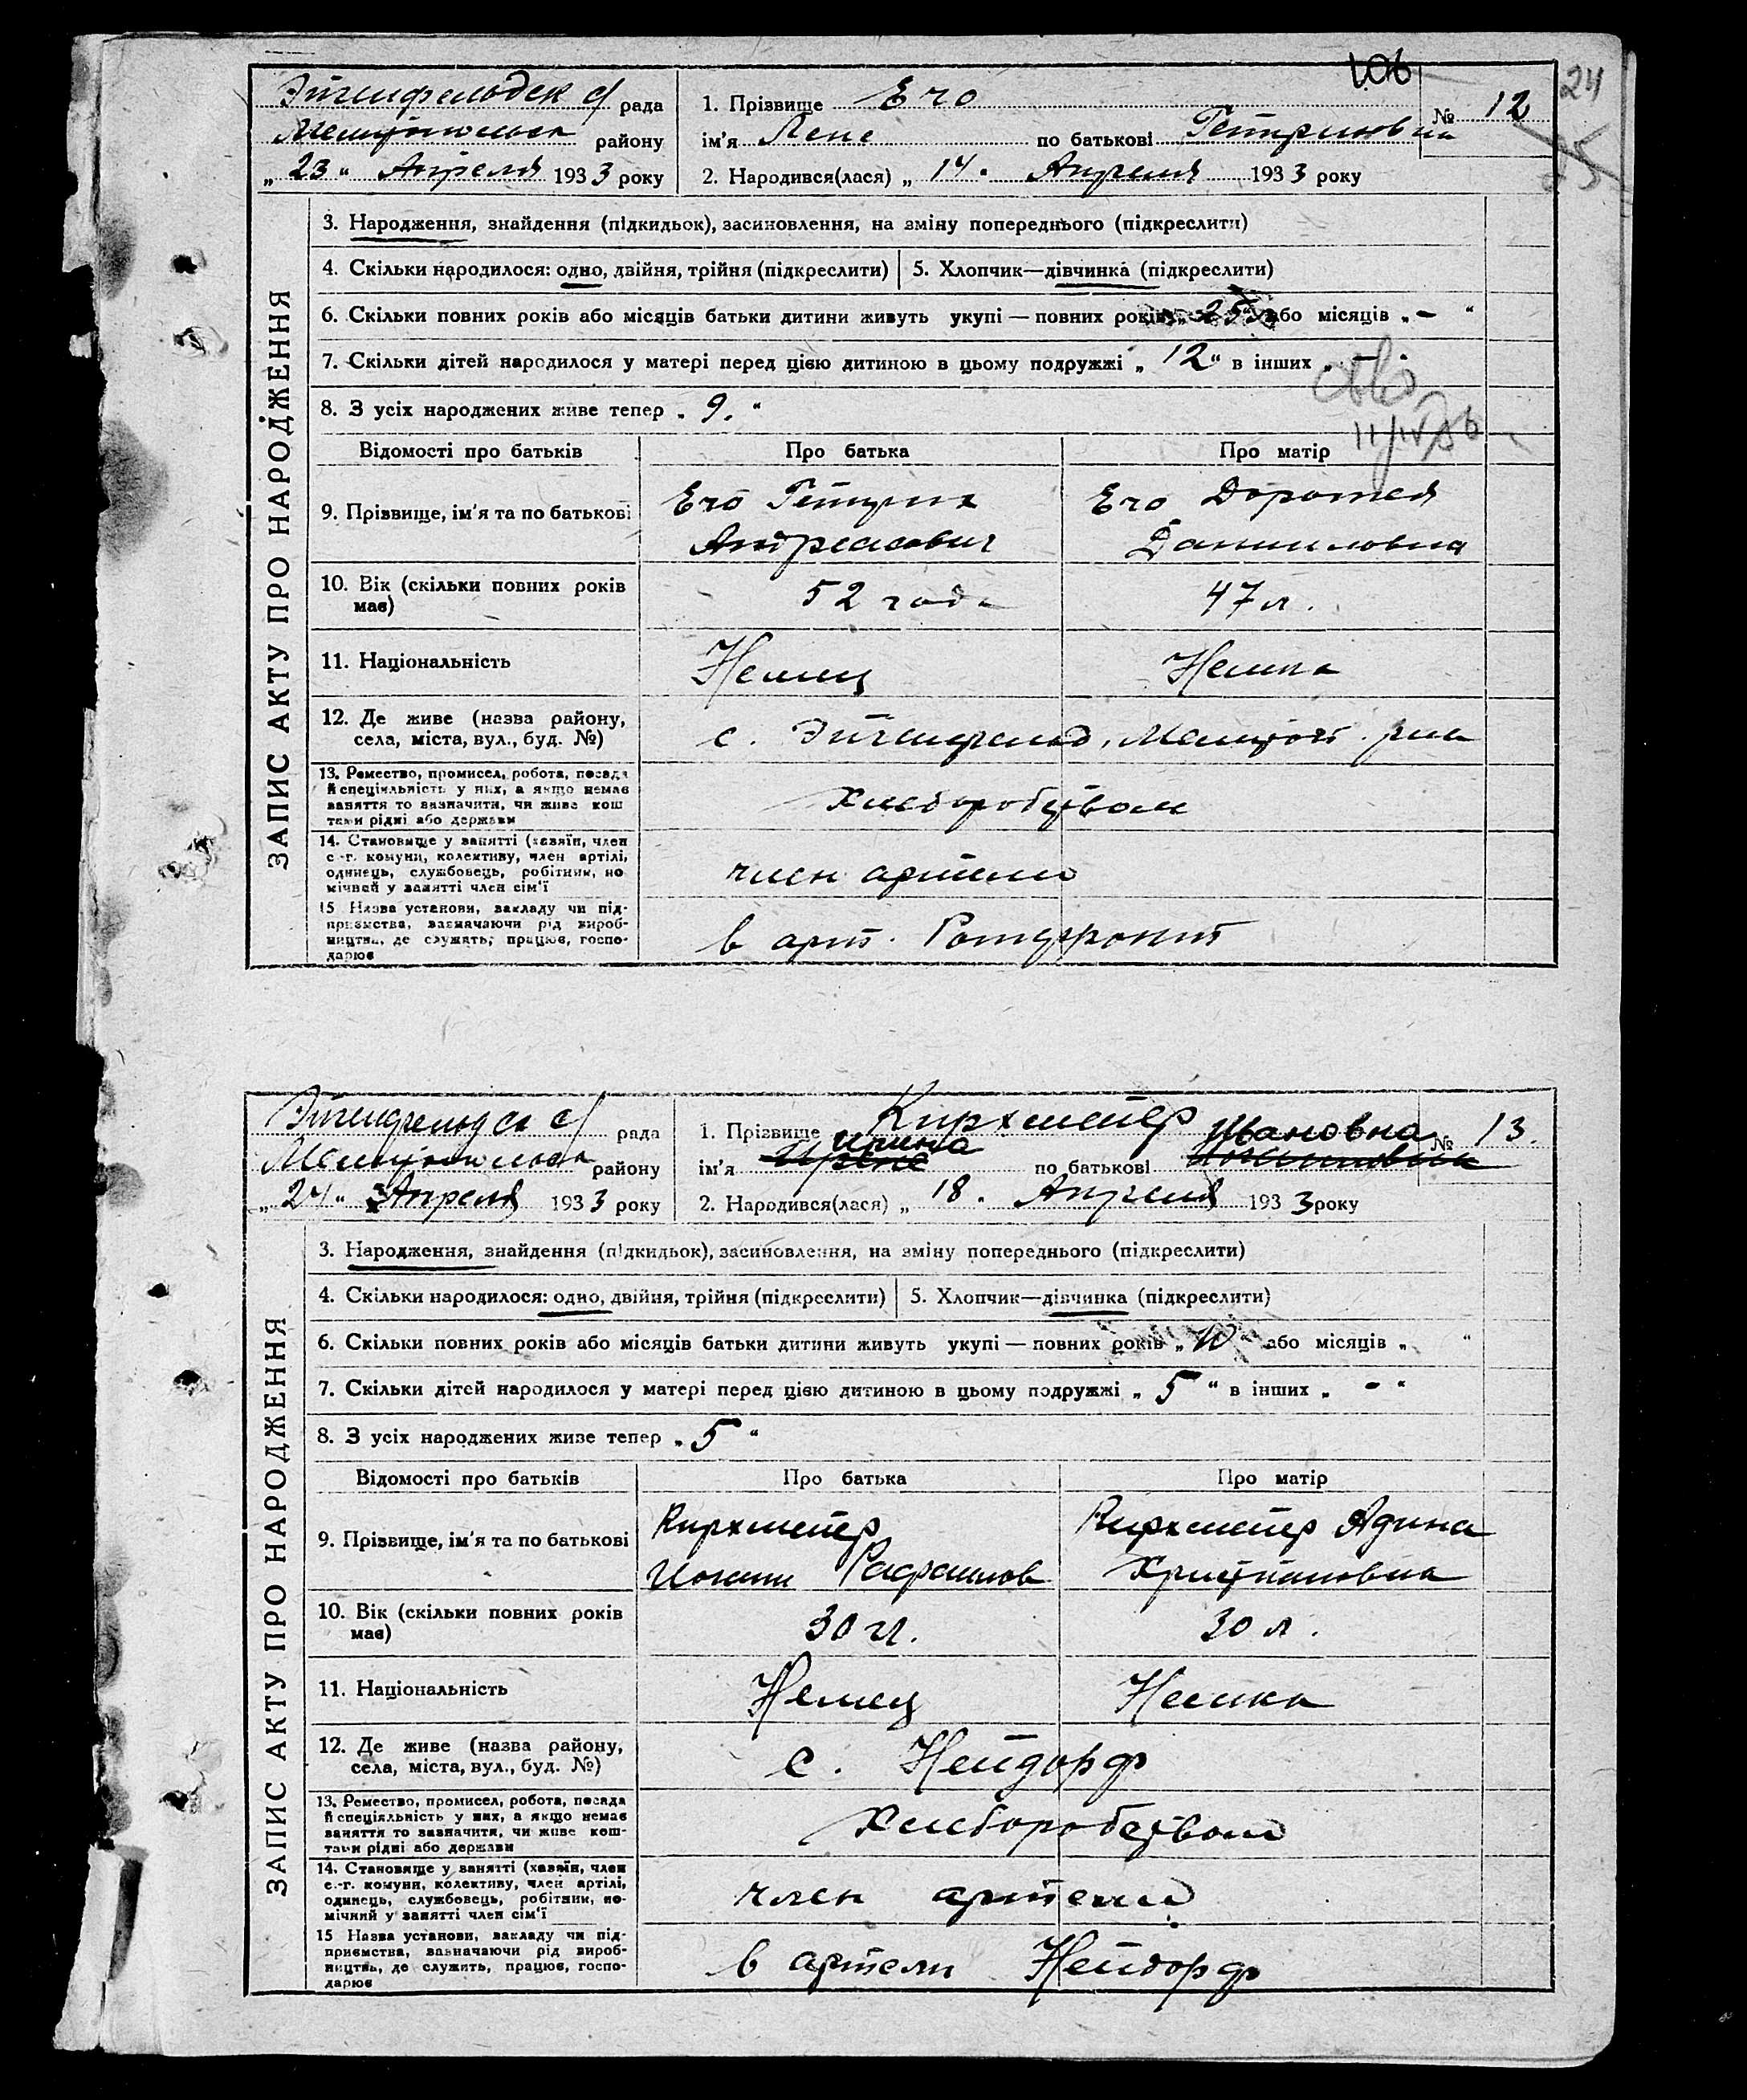 106
24
25
Эйгенфельдск с/ рада
Мелитопольск району
„23“ Апреля 1933 року
1. Прізвище Его
ім'я Лене по батькові Гейнриховна
№ 12
2. Народився(лася) „14“ Апреля 1933 року
ЗАПИС АКТУ ПРО НАРОДЖЕННЯ
3. Народження, знайдення (підкидьок), засиновлення, на зміну попереднього (підкреслити)
4. Скільки народилося: одно, двійня, трійня (підкреслити) 5. Хлопчик—дівчинка (підкреслити)
6. Скільки повних років або місяців батьки дитини живуть укупі — повних років „25“ або місяців „-“
7. Скільки дітей народилося у матері перед цією дитиною в цьому подружжі „12“ в інших „-
8. З усіх народжених живе тепер „9.“
Відомості про батьків Про батька Про матір
9. Прізвище, ім'я та по батькові Его Гейнрих Его Доротея
Андреасович Данииловна
10. Вік (скільки повних років має) 52 года 47 л.
11. Національність Немец Немка
12. Де живе (назва району, села, міста, вул., буд. №) с. Эйгенфельд, Мелитоп. р-на
13. Ремество, промисел, робота, посада й спеціяльність у них, а якщо немає заняття то визначити, чи живе коштами рідні або держави Хлеборобством
14. Становище у занятті (хазяїн, член с.-г. комуни, колективу, член артілі, одинець, службовець, робітник, помічний у занятті член сім'ї член артели
15 Назва установи, закладу чи підприємства, зазначаючи рід виробництва, де служить, працює, господарює в арт. Ротфронт
Эйгенфельдск с/ рада
Мелитопольск району
„24“ Апреля 1933 року
1. Прізвище Кирхмейер
Ирина Ивановна
ім'я Ирене по батькові Иоганновна
№ 13.
2. Народився(лася) „18“ Апреля 1933 року
ЗАПИС АКТУ ПРО НАРОДЖЕННЯ
3. Народження, знайдення (підкидьок), засиновлення, на зміну попереднього (підкреслити)
4. Скільки народилося: одно, двійня, трійня (підкреслити) 5. Хлопчик—дівчинка (підкреслити)
6. Скільки повних років або місяців батьки дитини живуть укупі — повних років „10“ або місяців „ “
7. Скільки дітей народилося у матері перед цією дитиною в цьому подружжі „5“ в інших „-“
8. З усіх народжених живе тепер „5“
Відомості про батьків Про батька Про матір
9. Прізвище, ім'я та по батькові Кирхмейер Кирхмейер Адина
Иоганн Рафаилов Христиановна
10. Вік (скільки повних років має) 30 л. 30 л.
11. Національність Немец Немка
12. Де живе (назва району, села, міста, вул., буд. №) с. Нейдорф
13. Ремество, промисел, робота, посада й спеціяльність у них, а якщо немає заняття то зазначити, чи живе коштами рідні або держави Хлеборобством
14. Становище у занятті (хазяїн, член с.-г. комуни, колективу, член артілі, одинець, службовець, робітник, помічний у занятті член сім'ї член артели
15 Назва установи, закладу чи підприємства, зазначаючи рід виробництва, де служить, працює, господарює в артели Нейдорф